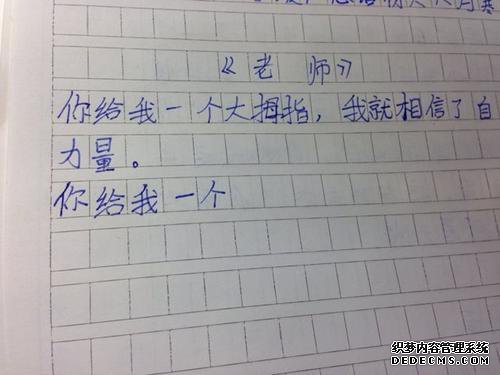 《老师》
你给我一个大拇指，我就相信了自
力量。
你给我一个
织梦内容管理系统
DEDECMS.COM